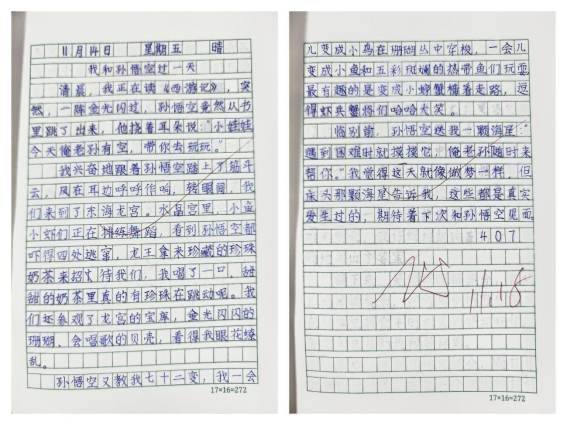 11月14日 星期五 晴
我和孙悟空过一天
清晨,我正在读《西游记》,突
然,一阵金光闪过,孙悟空竟然从书
里跳了出来,他挠着耳朵说:"小娃娃
今天俺老孙有空,带你去玩玩。"
我兴奋地跟着孙悟空踏上了筋斗
云,风在耳边呼呼作响,转眼间,我
们来到了东海龙宫。水晶宫里,小鱼
小虾们正在排练舞蹈,看到孙悟空都
吓得四处逃窜,龙王拿来珍藏的珍珠
奶茶来招待我们,我喝了一口,甜
甜的奶茶里真的有珍珠在跳动呢。我
们还参观了龙宫的宝库,金光闪闪的
珊瑚、会唱歌的贝壳,看得我眼花缭
乱。
孙悟空又教我七十二变,我一会
17×16=272
儿变成小鸟在珊瑚丛中穿梭,一会儿
变成小鱼和五彩斑斓的热带鱼们玩耍
最有趣的是变成小螃蟹横着走路,逗
得虾兵蟹将们哈哈大笑。
临别前,孙悟空送我一颗海星:"
遇到困难时就摸摸它,俺老孙随时来
帮你。"我觉得这天就像做梦一样,但
床头那颗海星告诉我,这些都是真实
发生过的,期待着下次和孙悟空见面。
407
11.18
17×16=272